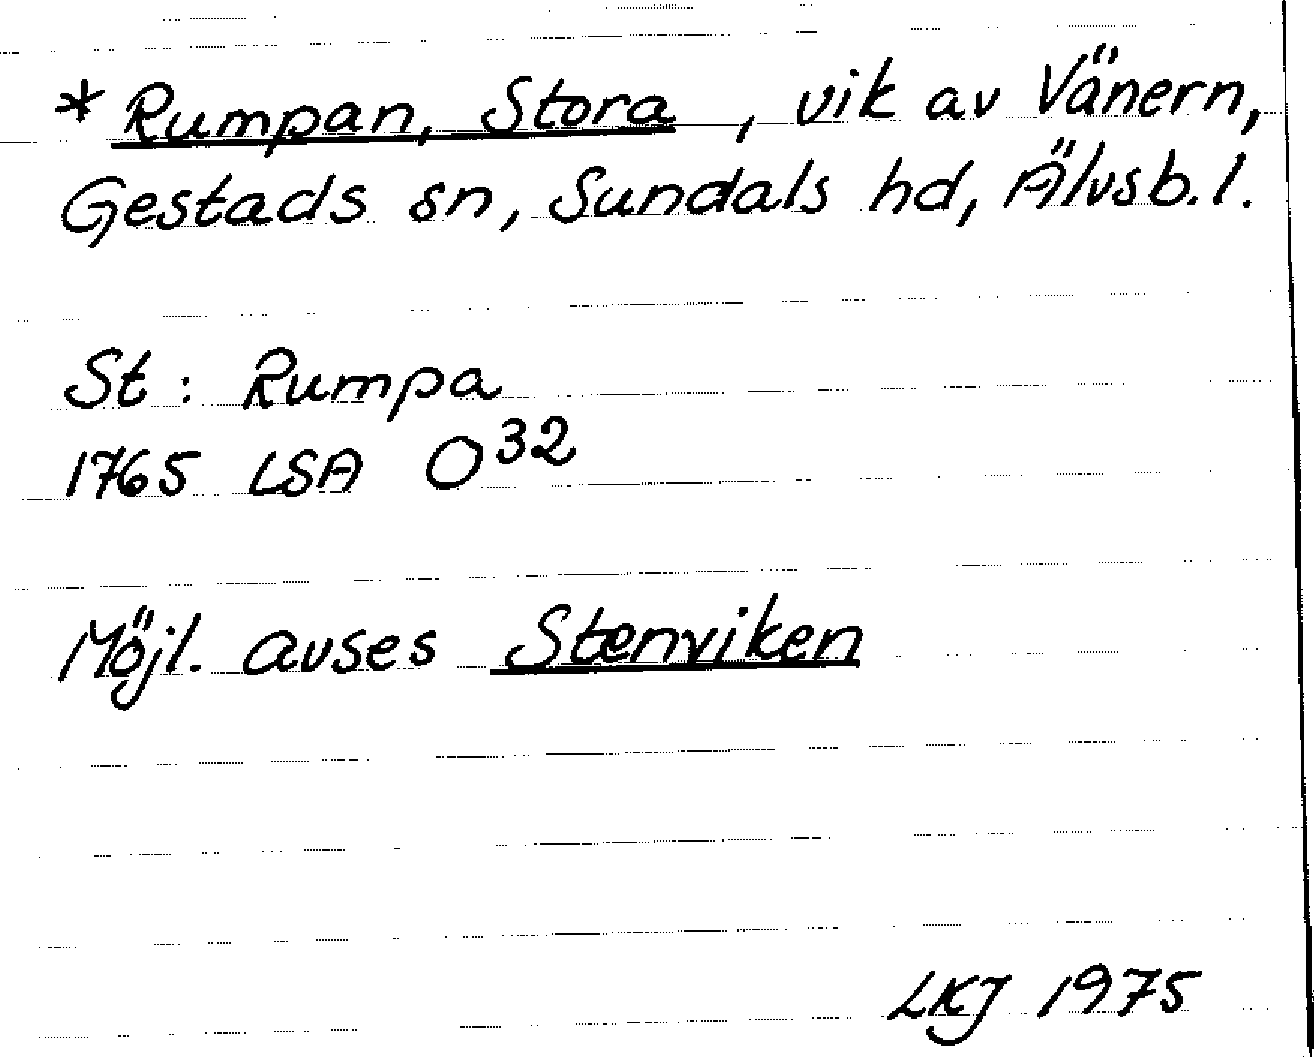 * Rumpan, Stora, vik av Vänern,
Gestads sn, Sundals hd, Älvsb. l.
St: Rumpa
1765 LSA O32
Möjl. avses Stenviken
LKJ 1975